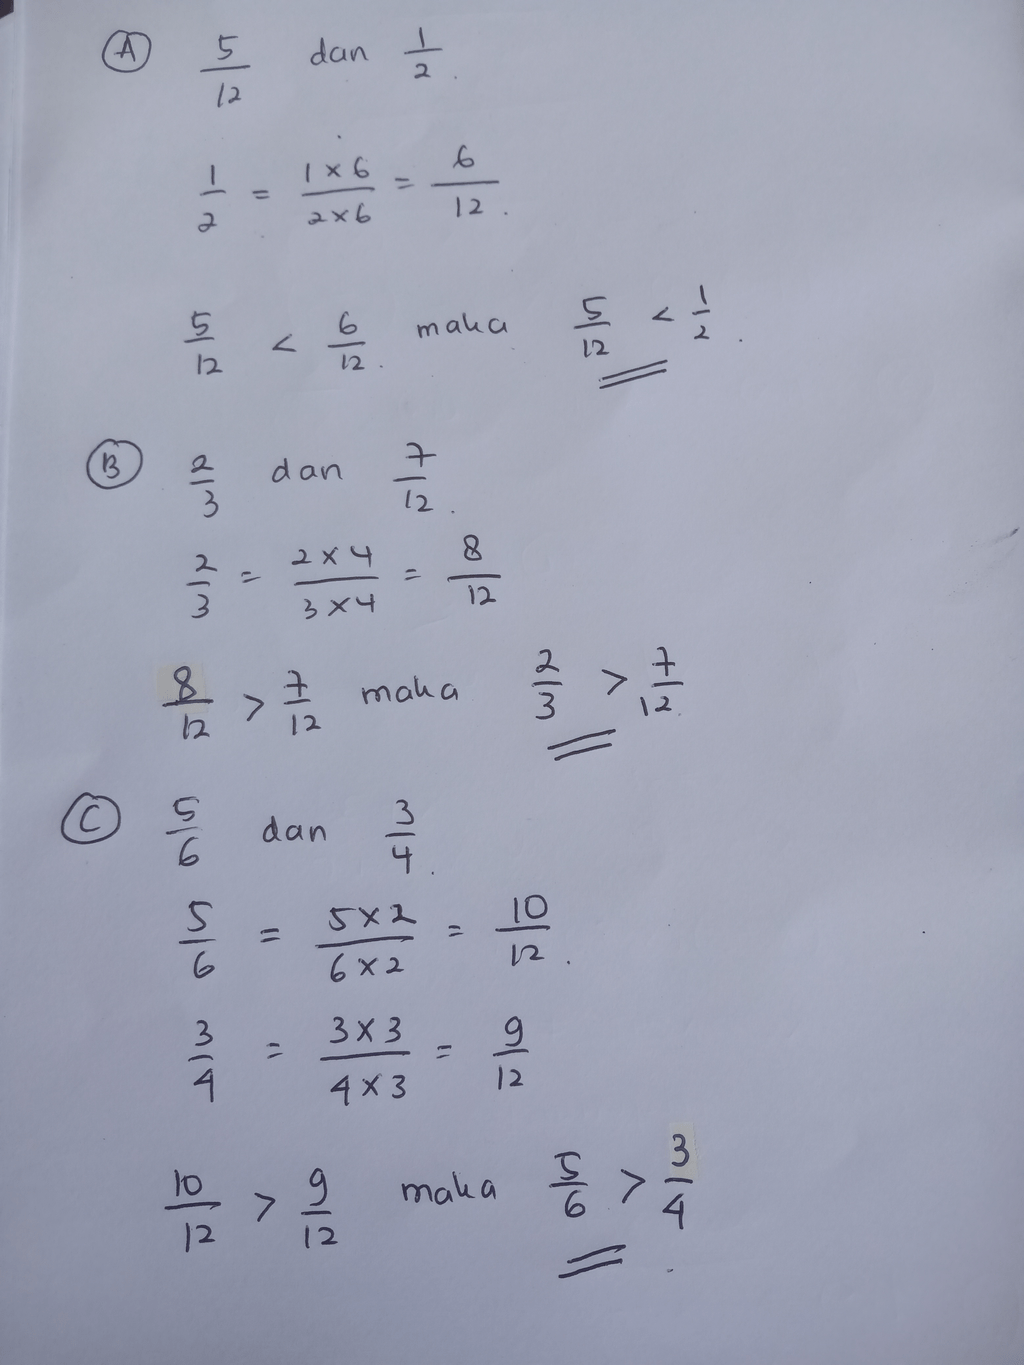 A 5/12 dan 1/2.
1/2 = 1 x 6 / 2 x 6 = 6/12.
5/12 < 6/12. maka 5/12 < 1/2.
B 2/3 dan 7/12.
2/3 = 2 x 4 / 3 x 4 = 8/12
8/12 > 7/12 maka 2/3 > 7/12.
C 5/6 dan 3/4.
5/6 = 5 x 2 / 6 x 2 = 10/12.
3/4 = 3 x 3 / 4 x 3 = 9/12
10/12 > 9/12 maka 5/6 > 3/4.